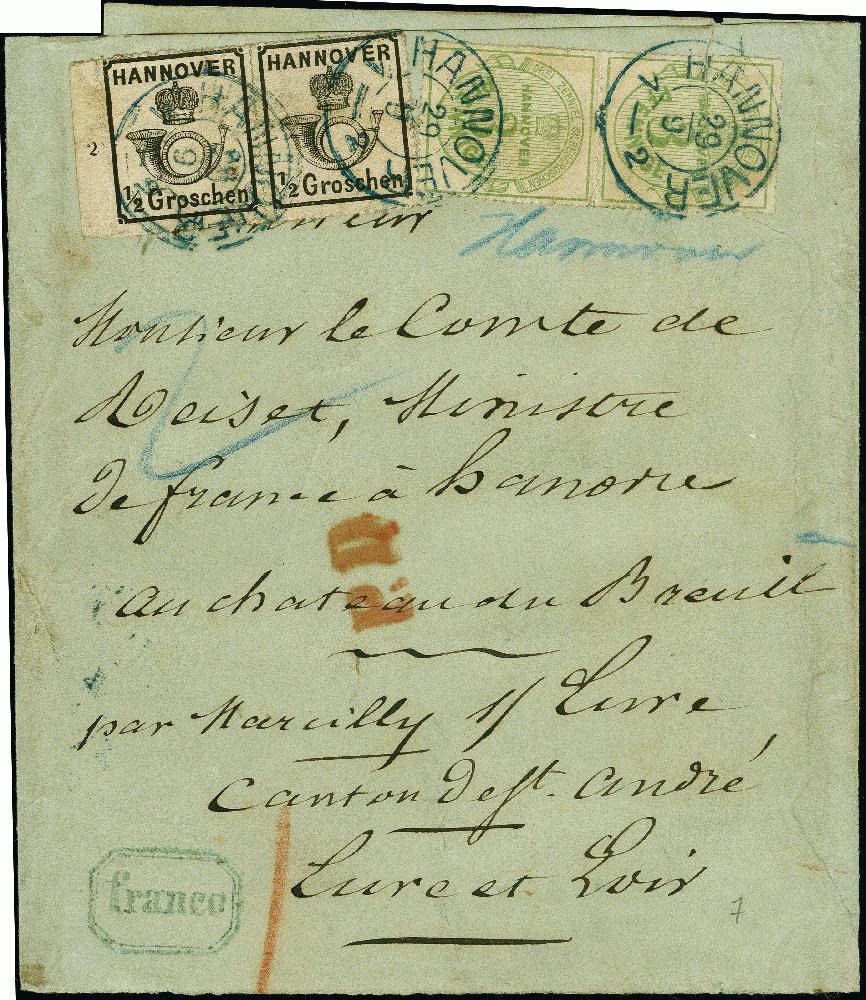 HANNOVER
HANNOVER
2
1/2 Groschen
1/2 Groschen
HANNOVER
3
HANNOVER
29
9
HANNOVER
29
9
1-2
Hannover
Monsieur le Comte de
Reiset, Ministre
de france à hanovre
2
P.D.
au chateau du Breuil
par Marcilly s/ Eure
Canton de st. andré
Eure et Loir
franco
7